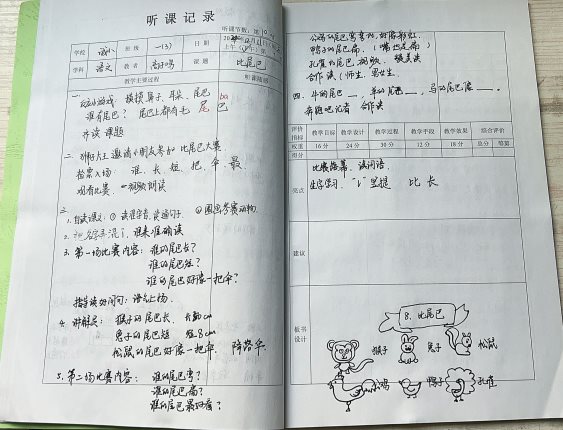 听课记录
听课节数：第10节
学校 班级 一(3) 日期
上午（下午）第 节
学科 语文 教者 课题 比尾巴
教学主要过程 听课随感
一、玩游戏：摸摸鼻子、耳朵、尾巴
谁有尾巴？尾巴上都有毛 尾 巴 ba
齐读 课题
二、狮子大王邀请小朋友参加比尾巴大赛。
检票入场：谁、长、短、把、伞、最
观看比赛
三、
1. 自读课文：① 读准字音，读通句子。② 圈出参赛动物。
2. 谁来准确读
3. 第一场比赛内容：谁的尾巴长？
谁的尾巴短？
谁的尾巴好像一把伞？
指导读好问句：语气上扬。
4. 讲解员：猴子的尾巴长
兔子的尾巴短 短8cm
松鼠的尾巴好像一把伞 降落伞
5. 第二场比赛内容：谁的尾巴弯？
谁的尾巴扁？
谁的尾巴最好看？
公鸡的尾巴弯弯的，好像彩虹
鸭子的尾巴扁（嘴也是扁）
孔雀的尾巴
合作读（师生、男女生）
四、牛的尾巴__，羊的尾巴__，马的尾巴__。
合作读
评价指标 教学目标 教学设计 教学过程 教学手段 教学效果 综合评价
权重 16分 24分 30分 12分 18分 总分 等第
得分
亮点
生字学习 比 长
建议
板书设计
8. 比尾巴
猴子 兔子 松鼠
公鸡 鸭子 孔雀